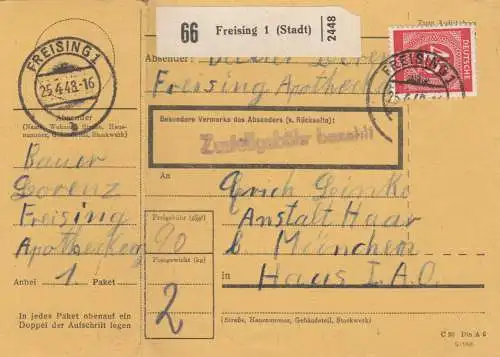 66 Freising 1 (Stadt) 2448
FREISING 1
25.4.48.-16
Absender
(Name, Wohnort, Straße, Haus-
nummer, Gebäudeteil, Stockwerk)
Bauer
Lorenz
Freising
Apothekerg
Anbei 1 Paket
In jedes Paket obenauf ein
Doppel der Aufschrift legen
Absender:
Freising Apotheke
DEUTSCHE
FREISING 1
Besondere Vermerke des Absenders (s. Rückseite):
Zustellgebühr bezahlt
An
Erich Leinko
Anstalt Haar
b. München
in Haus I.A.O.
Freigebühr (Rpf)
90
Paketgewicht (kg)
2
(Straße, Hausnummer, Gebäudeteil, Stockwerk)
C 90 Din A 6